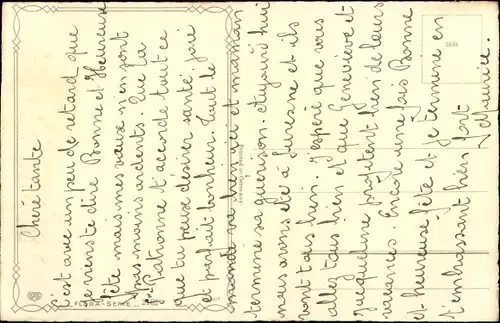 Chère tante
c'est avec un peu de retard que
je viens te dire Bonne et Heureuse
fête mais mes vœux n'en sont
pas moins ardents. Que ta
Ste Patronne t'accorde tout ce
que tu peux désirer santé, joie
et parfait bonheur. Tout le
monde va bien ici et maman
termine sa guérison. Aujourd'hui
nous avons été à Suresne et ils
vont tous bien. J'espère que vous
allez tous bien et que Geneviève et
Jacqueline profitent bien de leurs
vacances. Encore une fois Bonne
et heureuse fête et je termine en
t'embrassant bien fort
Maurice.
FLORA-SERIE
Printed in Germany